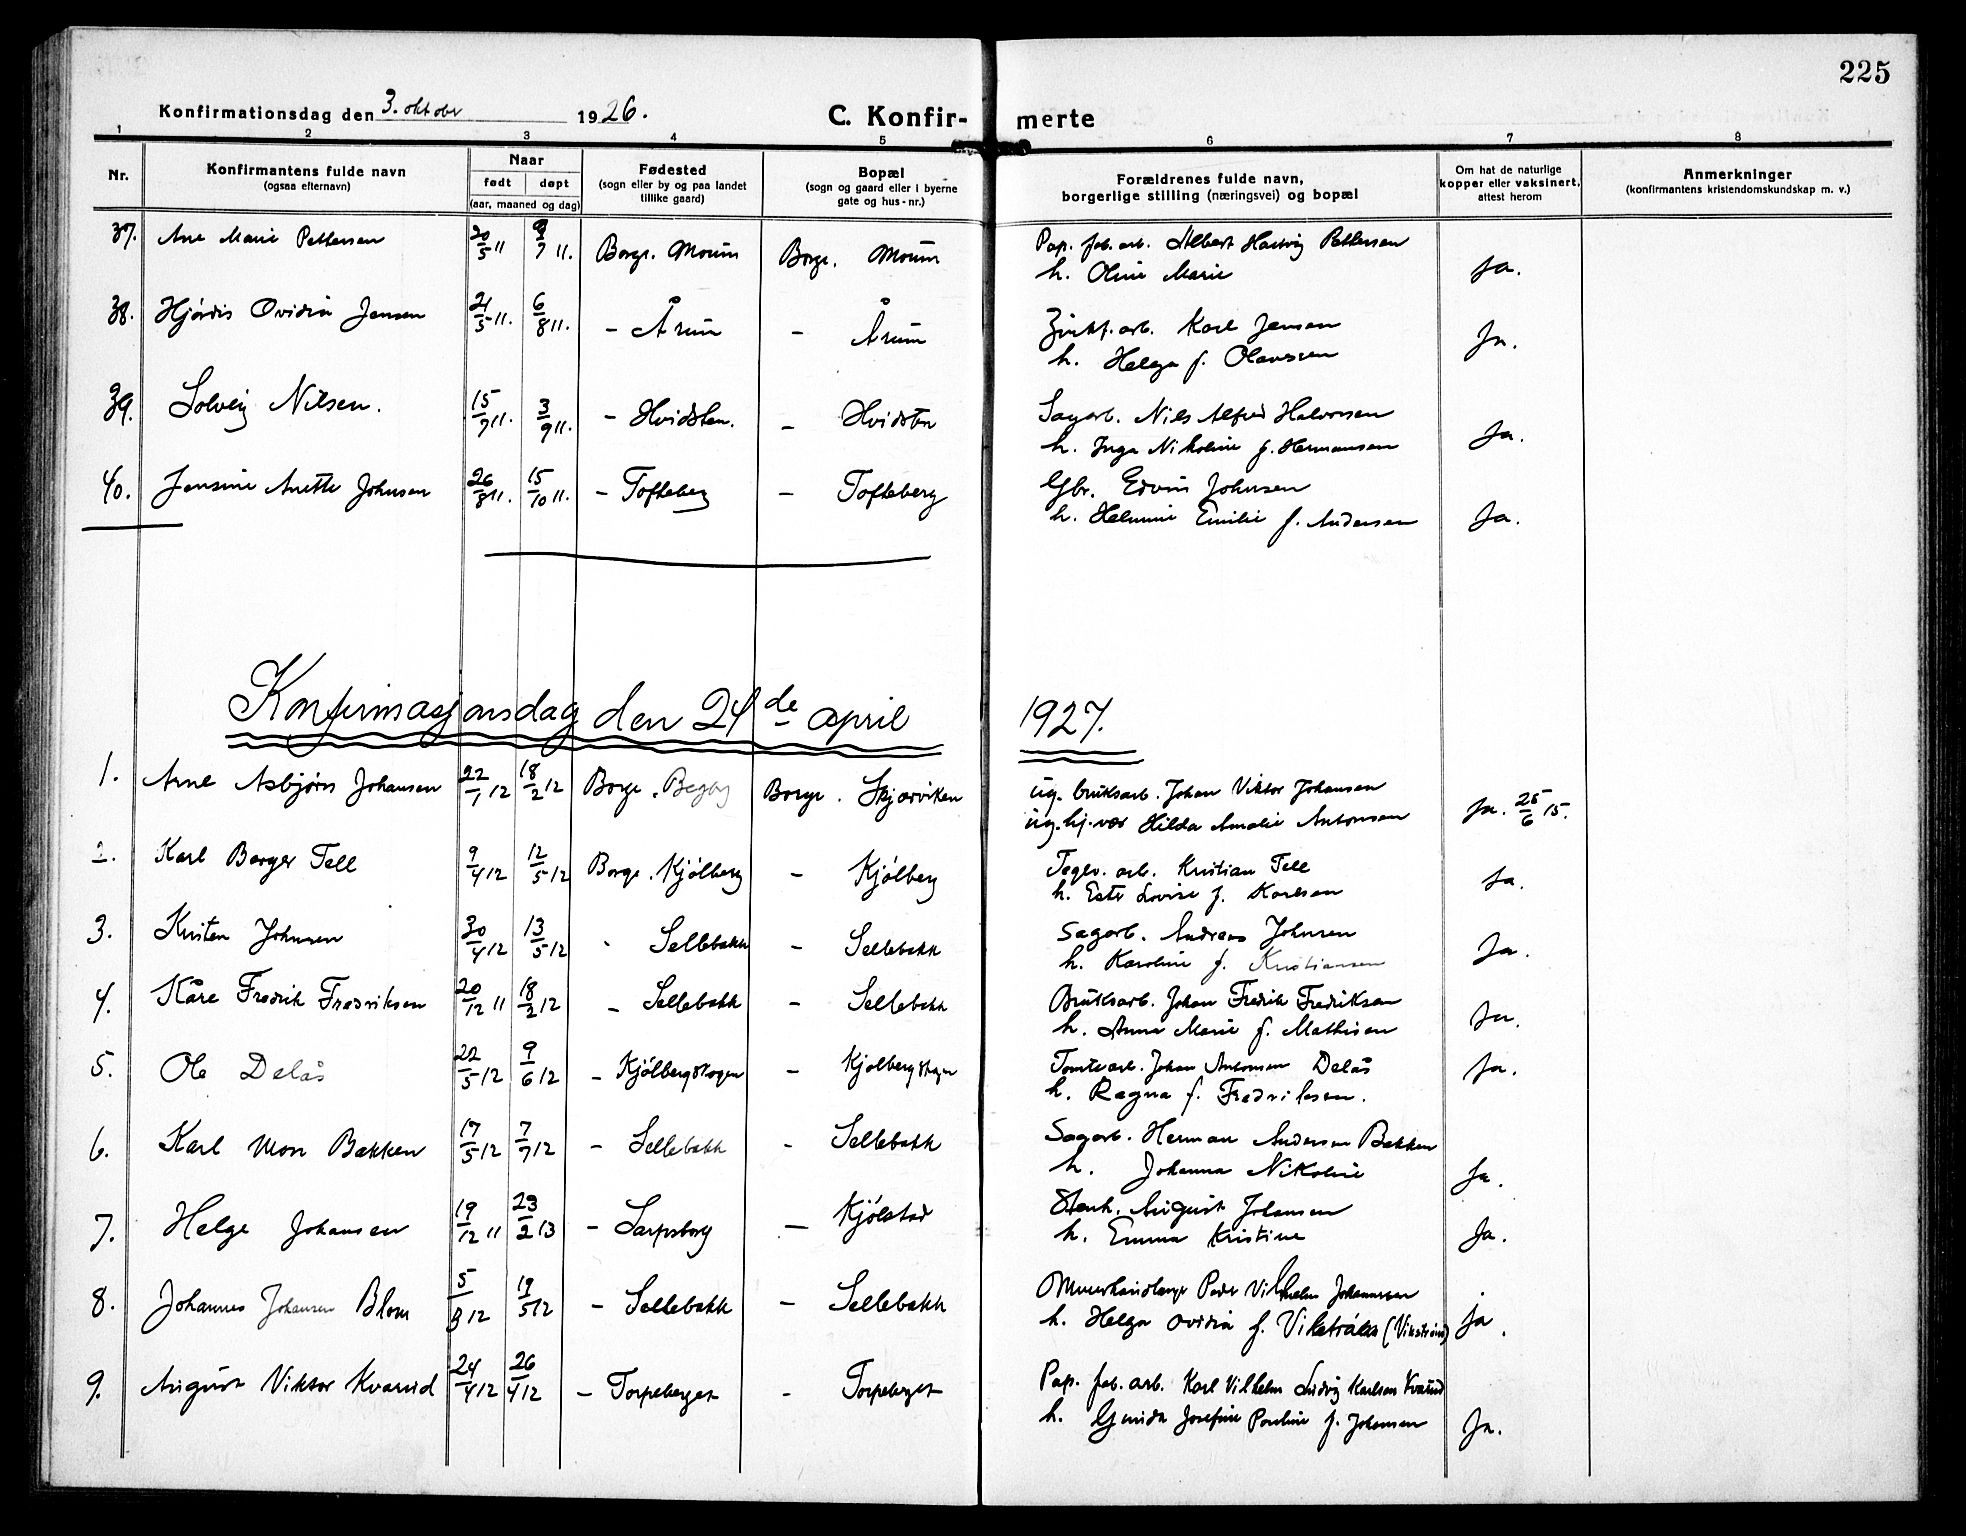 225
Konfirmationsdag den 3. oktober 1926.
C. Konfir-merte
1 2 3 4 5 6 7 8
Nr.
Konfirmantens fulde navn
(ogsaa efternavn)
Naar
født døpt
(aar, maaned og dag)
Fødested
(sogn eller by og paa landet
tillike gaard)
Bopæl
(sogn og gaard eller i byerne
gate og hus-nr.)
Forældrenes fulde navn,
borgerlige stilling (næringsvei) og bopæl
Om hat de naturlige
kopper eller vaksinert,
attest herom
Anmerkninger
(konfirmantens kristendomskundskap m. v.)
37. Ane Marie Pettersen 20/5 11 9/7 11. Borge. Moum Borge. Moum Pap. fab. arb. Albert Hartvig Pettersen
h. Oline Marie Ja.
38. Hjördis Ovidia Jensen 21/5 11. 6/8 11. – Årum – Årum Zinkf. arb. Karl Jensen
h. Helga f. Olaussen Ja.
39. Solveig Nilsen. 15/7 11. 3/9 11. – Hvidsten. – Hvidsten Sagarb. Nils Alfred Halvorsen
h. Inga Nikoline f. Hermansen Ja.
40. Jensine Anette Johnsen 26/8 11. 15/10 11. – Tofteberg – Tofteberg Gbr. Edvin Johnsen
h. Helmine Emilie f. Andersen Ja.
Konfirmasjonsdag den 24de april 1927.
1. Arne Asbjørn Johansen 22/1 12 18/2 12 Borge. Begby Borge. Skjærviken ug. bruksarb. Johan Viktor Johansen
ug. hj. vær Hilda Amalie Antonsen Ja. 25/6 15.
2. Karl Borger Tell 9/4 12 12/5 12 Borge. Kjölberg – Kjölberg Teglv. arb. Kristian Tell
h. Ester Lovise f. Karlsen Ja.
3. Kristen Johnsen 30/4 12 13/5 12 Sellebakk – Sellebakk Sagarb. Andreas Johnsen
h. Karoline f. Kristiansen Ja.
4. Kåre Fredrik Fredriksen 20/12 11 18/2 12 – Sellebakk – Sellebakk Bruksarb. Johan Fredrik Fredriksen
h. Anne Marie f. Mathisen Ja.
5. Ole Delås 22/5 12 9/6 12 – Kjölbergskogen – Kjölbergskogen Tomtearb. Johan Antonsen Delås Ja.
h. Ragna f. Fredriksen.
6. Karl Mon Bakken 17/5 12 7/7 12 – Sellebakk – Sellebakk Sagarb. Herman Andersen Bakken
h. Johanna Nikoline Ja.
7. Helge Johansen 19/12 11 23/2 13 – Sarpsborg – Kjölstad Stenh. August Johansen
h. Emma Kristine Ja.
8. Johannes Johansen Blom 5/3 12 19/5 12 – Sellebakk – Sellebakk Murerhandlanger Peder Vilhelm Johannesen
h. Helga Ovidia f. (Vikström) ja.
9. August Viktor Kvarud 24/4 12 26/4 12 – Torpeberget – Torpeberget Pap. fab. arb. Karl Vilhelm Ludvig Karlsen
h. Gunda Josefine Pauline f. Johansen Ja.